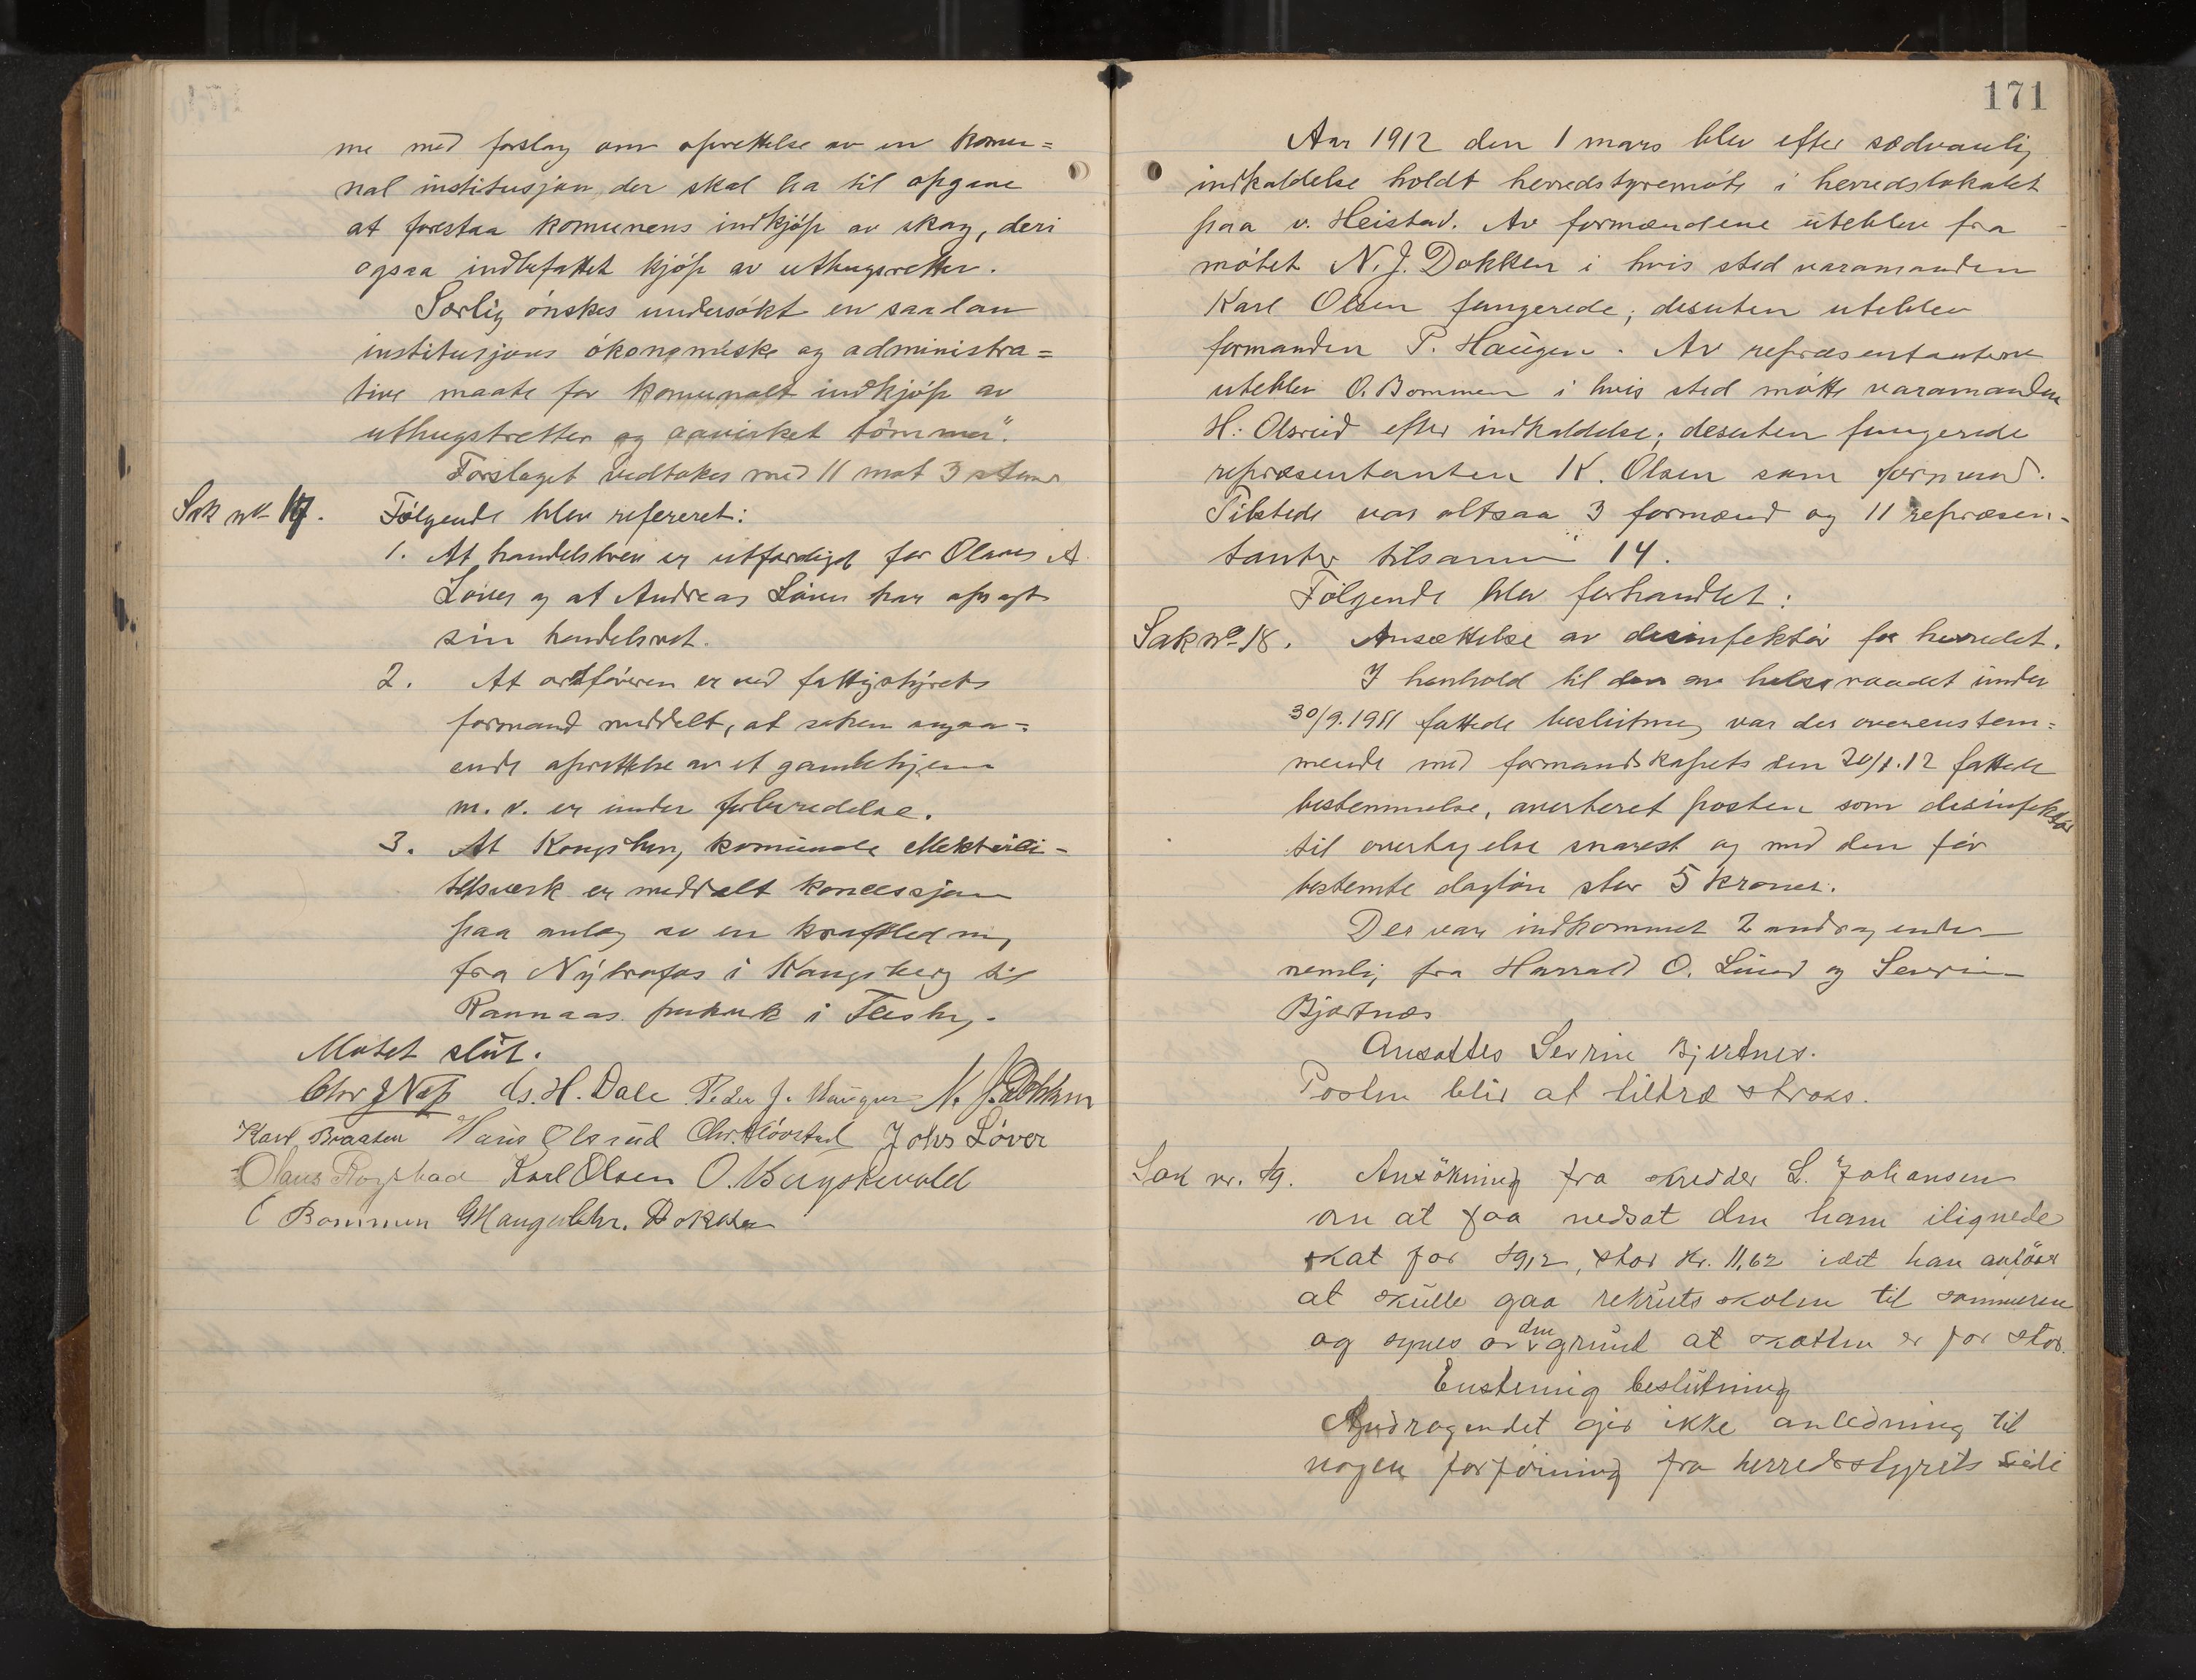 me med forslag om oprettelse av en komu=
nal institusjon, der skal ha til opgave
at forestaa komunens indkjøp av skog, deri
ogsaa indbefattet kjøp av uthugsretter.
Særlig ønskes undersøkt en saadan
institusjons økonomiske og administra=
tive maate for komunalt indkjøp av
uthugstretter og aavirket tømmer".
Forslaget vedtokes med 11 mot 3 stem
Sak no 17. Følgende blev refereret:
1. At handelsbrev er utfærdiget for Olaves A
Løver og at Andreas Løver har opsagt
sin handelsret.
2. At ordføreren er ved fattigstyrets
formand meddelt, at saken angaa=
ende oprettelse av et gamlehjem
m. v. er under forberedelse.
3. At Kongsberg komunale elektrici-
tetsverk er meddelt koncessjon
paa anlæg av en kraftledning
fra Nybrofos i Kongsberg til
Rannaas pukverk i Flesberg.
Møtet slut.
Chr J Næss Hs. H. Dale Peder J. Haugen N. J. Dokken
Karl Braaten Hans Olsrud Chr. Hovstad Johs Løver
Olaus Rogstad Karl Olsen O. Bergskevold
O Bommen G Haugen Chr. Dokken
171
Aar 1912 den 1 mars blev efter sædvanlig
indkaldelse holdt herredstyremøte i herredslokalet
paa v. Heistad. Av formændene uteblev fra
møtet N. J. Dokken i hvis sted varamanden
Karl Olsen fungerede; desuten uteblev
formanden P. Haugen. Av repræsentanterne
uteblev O. Bommen i hvis sted møtte varamanden
H. Olsrud efter indkaldelse; desuten fungerede
repræsentanten K. Olsen som formand.
Tilstede var altsaa 3 formænd og 11 repræsen-
tanter tilsammen 14.
Følgende blev forhandlet:
Sak no 18. Ansættelse av desinfektør for herredet.
I henhold til den av helseraadet under
30/9.1911 fattede beslutning var der overenstem=
mende med formandskapets den 20/1.12 fattede
bestemmelse, averteret posten som desinfektør
til overtagelse snarest og med den før
bestemte dagløn stor 5 kroner.
Der var indkommet 2 andragender
nemlig fra Harald O. Lund og Severin
Bjørtnæs
Ansattes Sevrin Bjertnes.
Posten blir at tiltræ straks.
Sak nr. 19. Ansökning fra skredder L. Johansen
om at faa nedsat den ham ilignede
skat for 1912, stor kr. 11,62 idet han anförer
at skulle gaa rekrutskolen til sommeren
og synes av den grund at skatten er for stor.
Enstemig beslutning
Andragendet gir ikke anledning til
nogen forføining fra herredsstyrets side